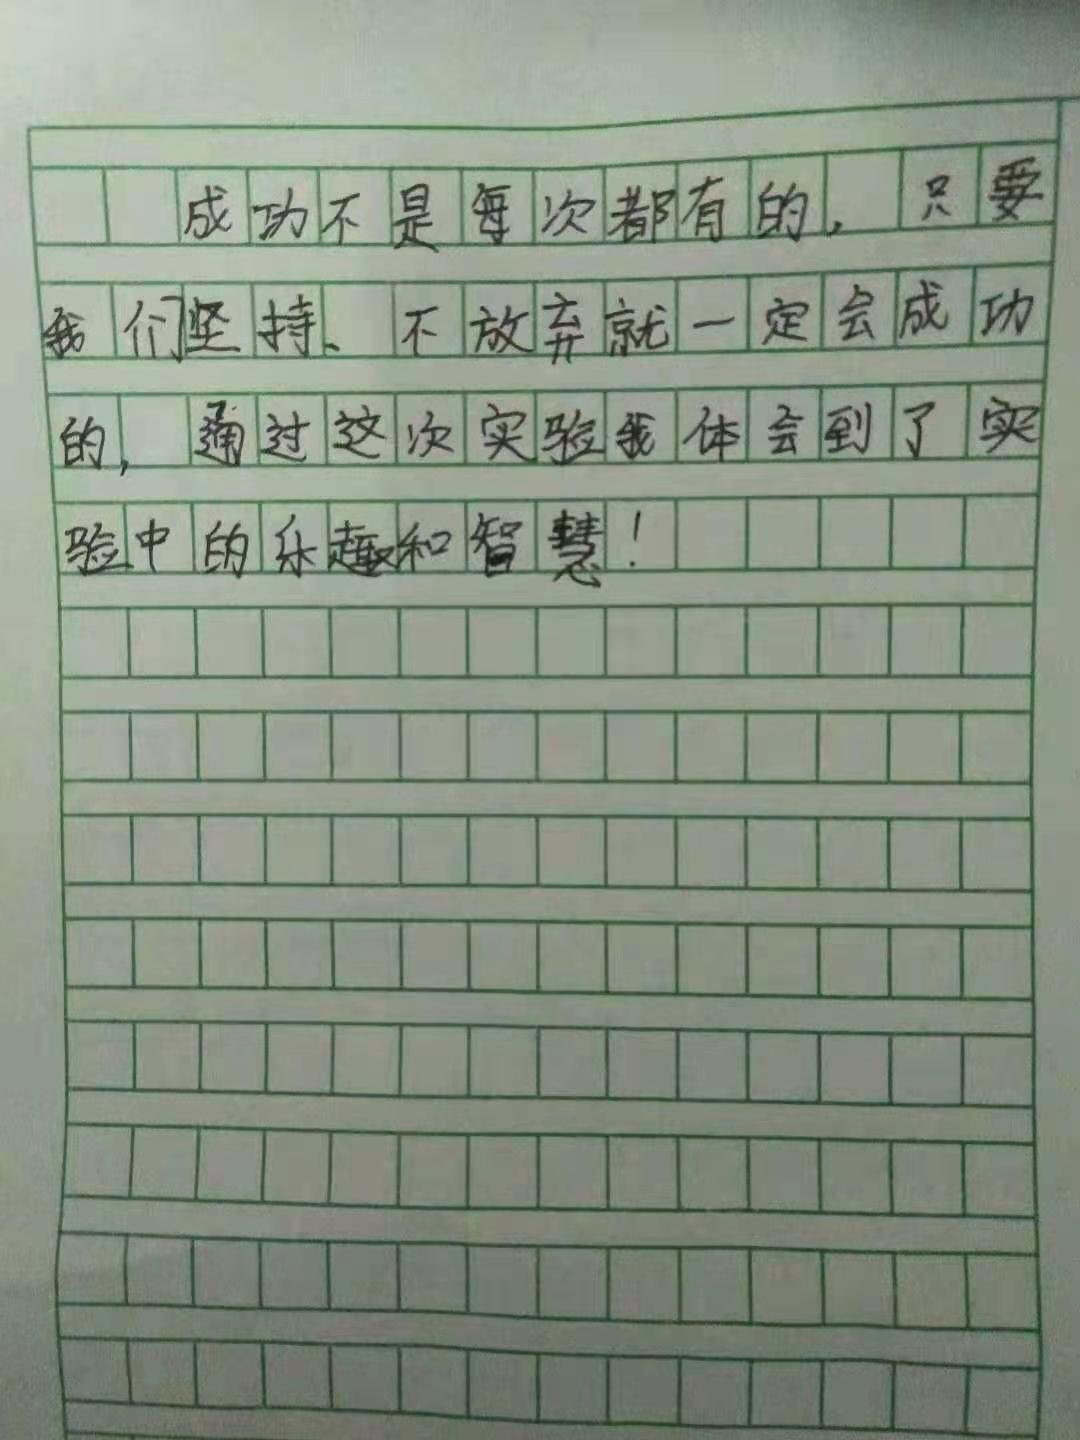 成功不是每次都有的,只要
我们坚持、不放弃就一定会成功
的,通过这次实验我体会到了实
验中的乐趣和智慧!